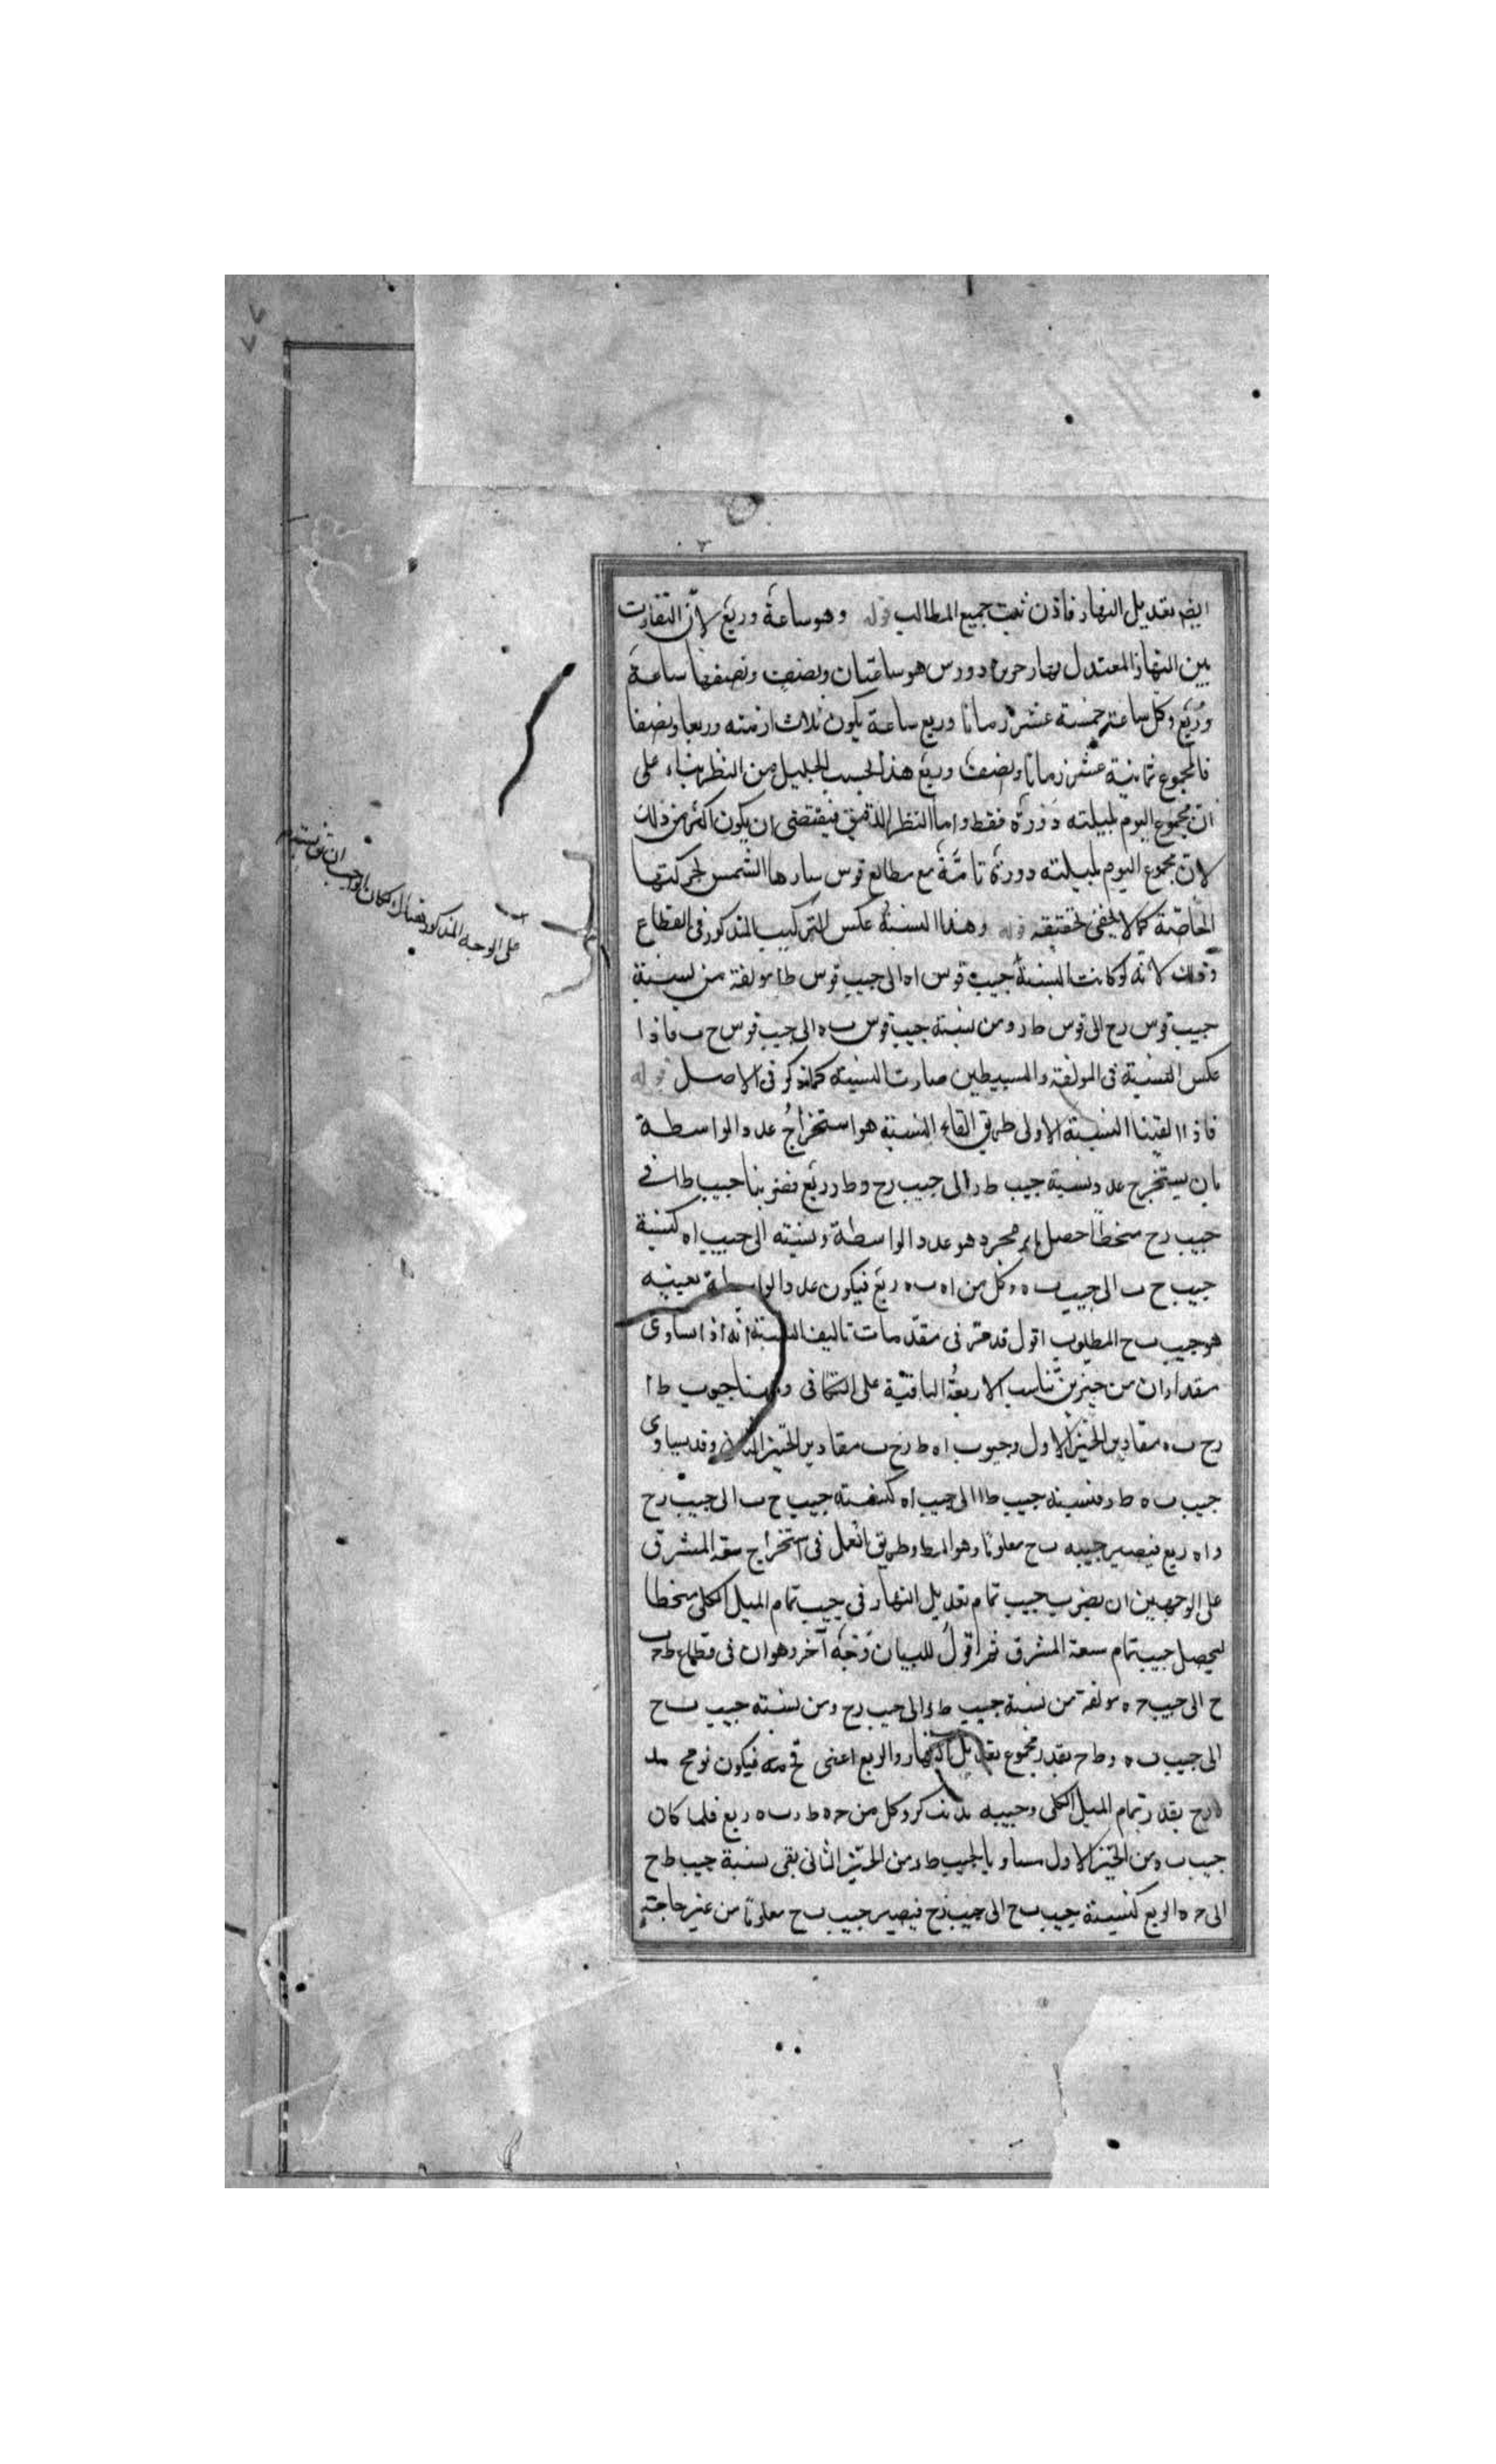 ايضا بتعديل النهار فاذن ثبت جميع المطالب قوله وهو ساعة وربع لان التفاوت
بين النهار المعتدل ونهار جزيرة رودس هو ساعتان ونصف ونصفها ساعة
وربع وكل ساعة خمسة عشر زمانا وربع ساعة يكون ثلاث ازمنه وربعا ونصفا
فالمجموع ثمانية عشر زمانا ونصف وربع هذا بحسب الجليل من النظر بناء على
ان مجموع اليوم بليلته دورة فقط واما النظر الدقيق فيقتضى ان يكون اكثر من ذلك
لان مجموع اليوم بليلته دورة تامة مع مطالع قوس سارها الشمس بحركتها
الخاصة كما لا يخفى تحقيقه قوله وهذا النسبة عكس التركيب المذكور فى القطاع
وذلك لانه لو كانت النسبة جيب قوس اه الى جيب قوس طا مولفة من نسبة
جيب قوس رح الى قوس طر ومن نسبة جيب قوس ٮه الى جيب قوس ح ٮ فاذا
عكس النسبة فى المولفة والبسيطين صارت النسبة كما ذكر فى الاصل قوله
فاذا القينا النسبة الاولى طريق القاء النسبة هو استخراج عدد الواسطة
بان يستخرج عدد نسبة جيب طر الى جيب رح وطر ربع فضربنا جيب طا فى
جيب رح منحطا حصل مجرد هو عدد الواسطة ونسبته الى جيب اه كنسبة
جيب ح ٮ الى جيب ٮه وكل من اه ٮه ربع فيكون عدد الواسطة بعينه
هو جيب ٮح المطلوب اقول قد مر فى مقدمات تاليف النسبة انه اذا تساوى
مقداران من حيزين تناسب الاربعة الباقية على التكافى وههنا جيوب طا
رح ٮه مقادير الحيز الاول وجيوب اه طر ح ٮ مقادير الحيز الثانى وقد يساوى
جيب ٮه طر فنسبة جيب طا الى جيب اه كنسبة جيب ح ٮ الى جيب رح
واه ربع فيصير جيب ٮح معلوما وهو المط وطريق العمل فى استخراج سعة المشرق
على الوجهين ان يضرب جيب تمام تعديل النهار فى جيب تمام الميل الكلى منحطا
ليحصل جيب تمام سعة المشرق ثم اقول للبيان وجه آخر وهو ان فى قطاع
ح الى جيب ح ه مولفة من نسبة جيب طر الى جيب رح ومن نسبة جيب ٮح
الى جيب ٮه وطح بقدر مجموع تعديل النهار والربع اعنى فيكون
رح بقدر تمام الميل الكلى وجيبه وكل من ح ه طر ٮه ربع فلما كان
جيب ٮه من الحيز الاول مساويا لجيب طر من الحيز الثانى بقى نسبة جيب طح
الى ح ه الربع كنسبة جيب ٮح الى جيب رح فيصير جيب ٮح معلوما من غير حاجة
على الوجه المذكور